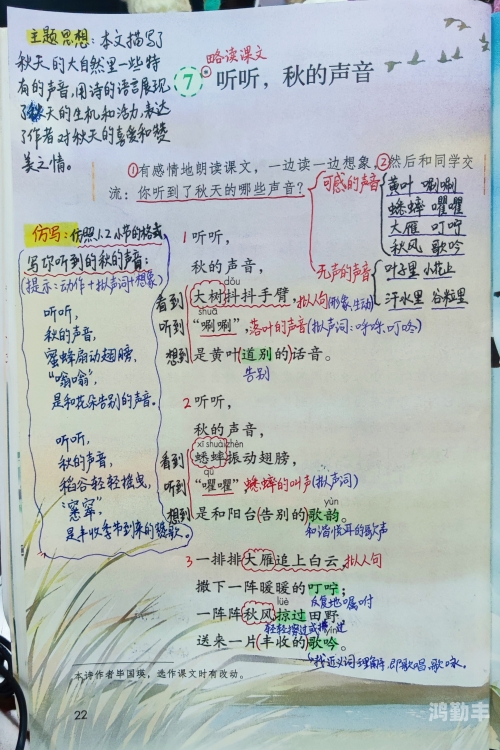 主题思想：本文描写了
秋天的大自然里一些特
有的声音，用诗的语言展现
了秋天的生机和活力，表达
了作者对秋天的喜爱和赞
美之情。
略读课文
7 听听，秋的声音
①有感情地朗读课文，一边读一边想象，②然后和同学交
流：你听到了秋天的哪些声音？
可感的声音
黄叶 唰唰
蟋蟀 㘗㘗
大雁 叮咛
秋风 歌吟
无声的声音
叶子里 小花上
汗水里 谷粒里
仿写：仿照1.2小节的格式，
写你听到的秋的声音：
(提示：动作+拟声词+想象)
听听，
秋的声音，
蜜蜂扇动翅膀，
“嗡嗡”，
是和花朵告别的声音。
听听，
秋的声音，
稻谷轻轻摇曳，
“窸窣”，
1 听听，
秋的声音，
dǒu
看到 大树抖抖手臂，拟人句(形象、生动)
shuā
听到 “唰唰”，落叶的声音(拟声词：呼呼、叮咚)
想到 是黄叶(道别的)话音。
告别
2 听听，
秋的声音，
xī shuài zhèn
看到 蟋蟀振动翅膀，
qú
听到 “㘗㘗”，蟋蟀的叫声(拟声词)
yùn
想到 是和阳台(告别的)歌韵。
和谐悦耳的歌声
3 一排排大雁追上白云，拟人句
撒下一阵暖暖的叮咛；
反复地嘱咐
lüè
一阵阵秋风掠过田野，
yín
送来一片(丰收的)歌吟。
本诗作者毕国瑛，选作课文时有改动。
22
鸿勤丰